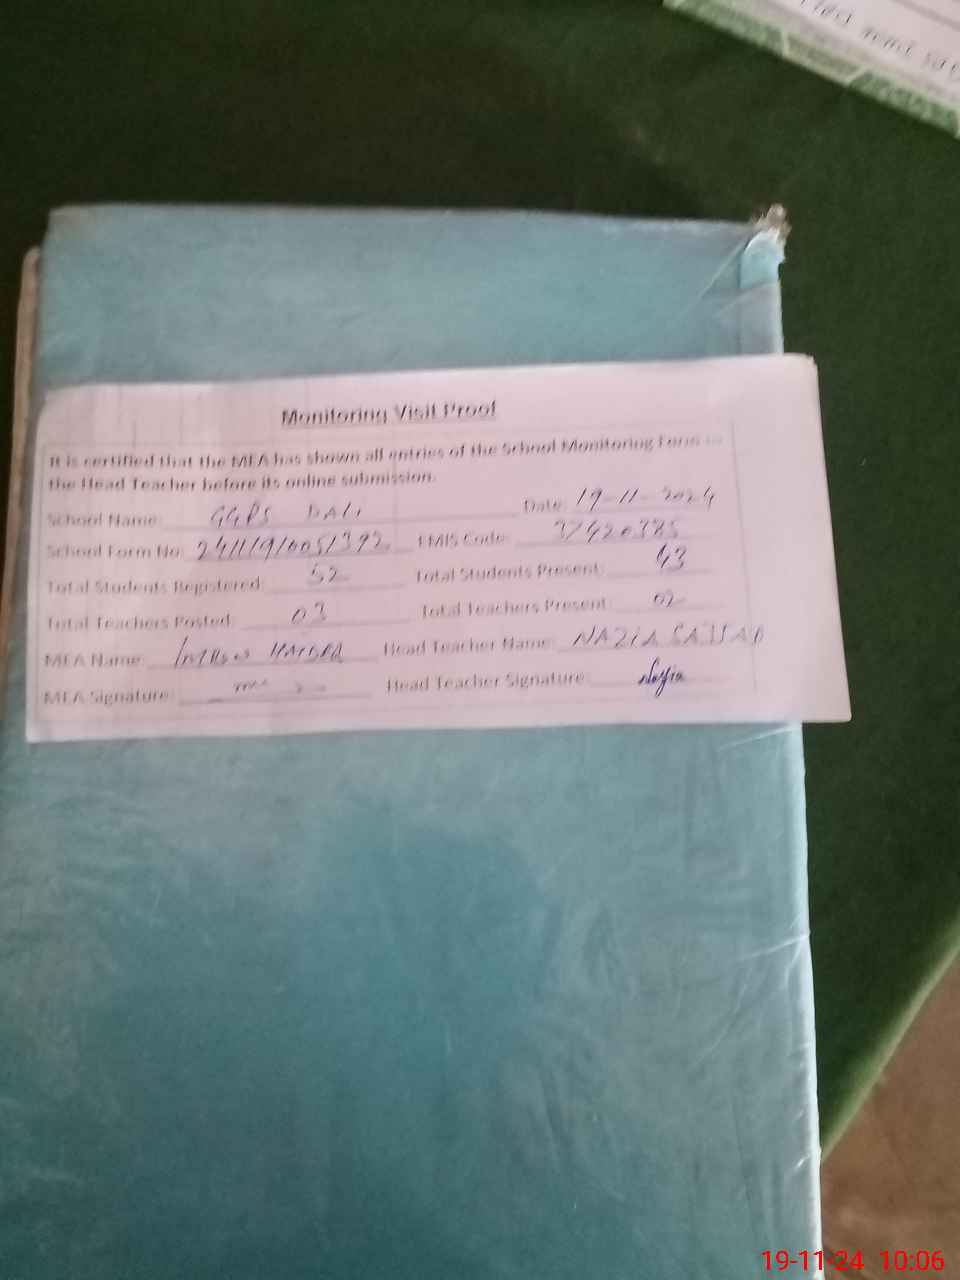 Monitoring Visit Proof
It is certified that the MEA has shown all entries of the School Monitoring Form to
the Head Teacher before its online submission.
School Name: GGPS DALI Date: 19-11-2024
School Form No: EMIS Code: 37420385
Total Students Registered: 52 Total Students Present: 43
Total Teachers Posted: 03 Total Teachers Present: 02
MEA Name: HAIDER Head Teacher Name: NAZIA SAJJAD
MEA Signature: Head Teacher Signature: Nazia
19-11-24 10:06